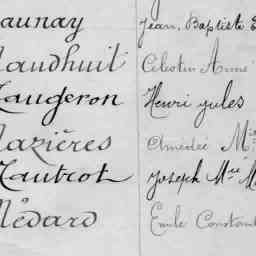 aunay Jean, Baptiste E
audhuit Célestin Aimé
augeron Henri Jules
azières Amédée M
autrot Joseph Mie M
Médard Emile Constan